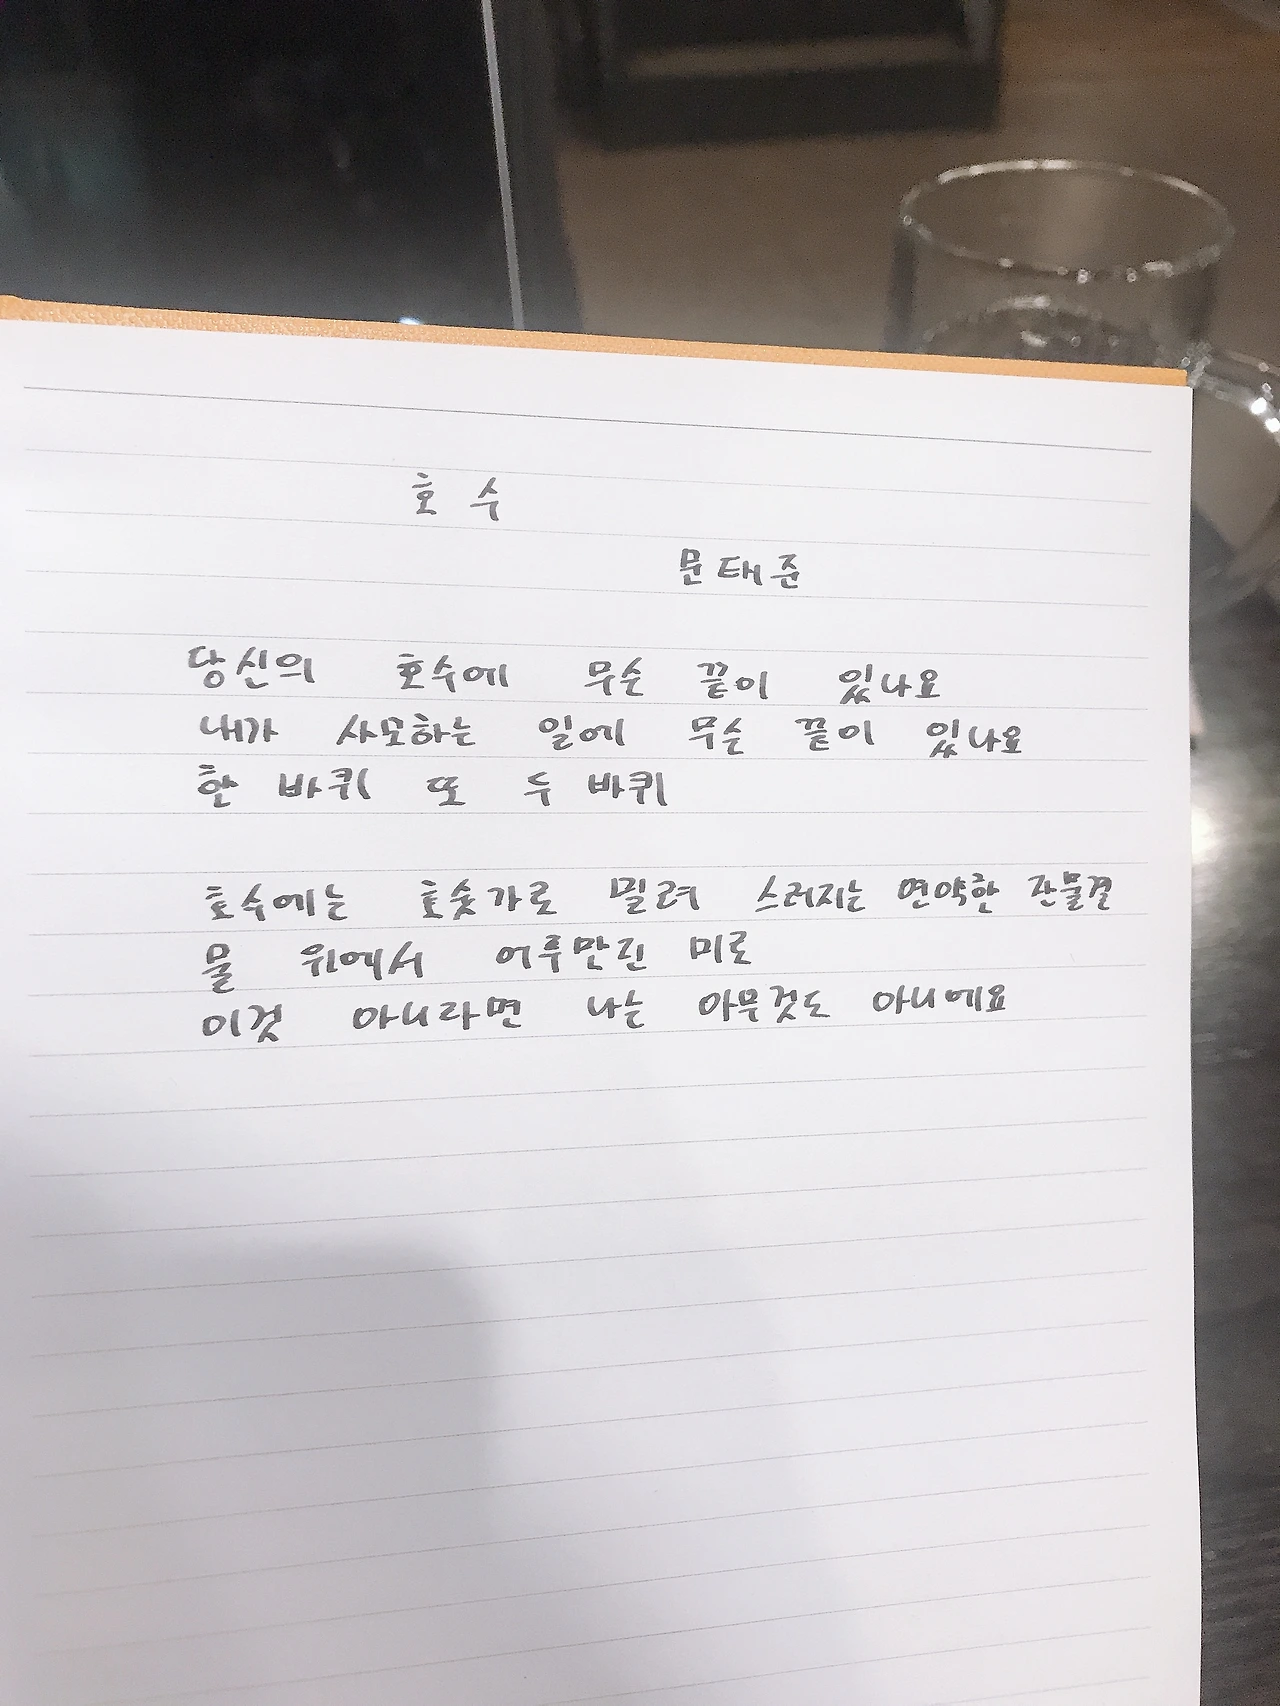 호수
문태준
당신의 호수에 무슨 끝이 있나요
내가 사모하는 일에 무슨 끝이 있나요
한 바퀴 또 두 바퀴
호수에는 호숫가로 밀려 스러지는 연약한 잔물결
물 위에서 어루만진 미로
이것 아니라면 나는 아무것도 아니에요